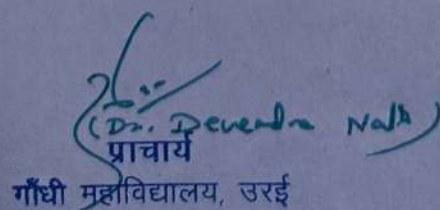 (Dr. Devendra Nath)
प्राचार्य
गाँधी महाविद्यालय, उरई